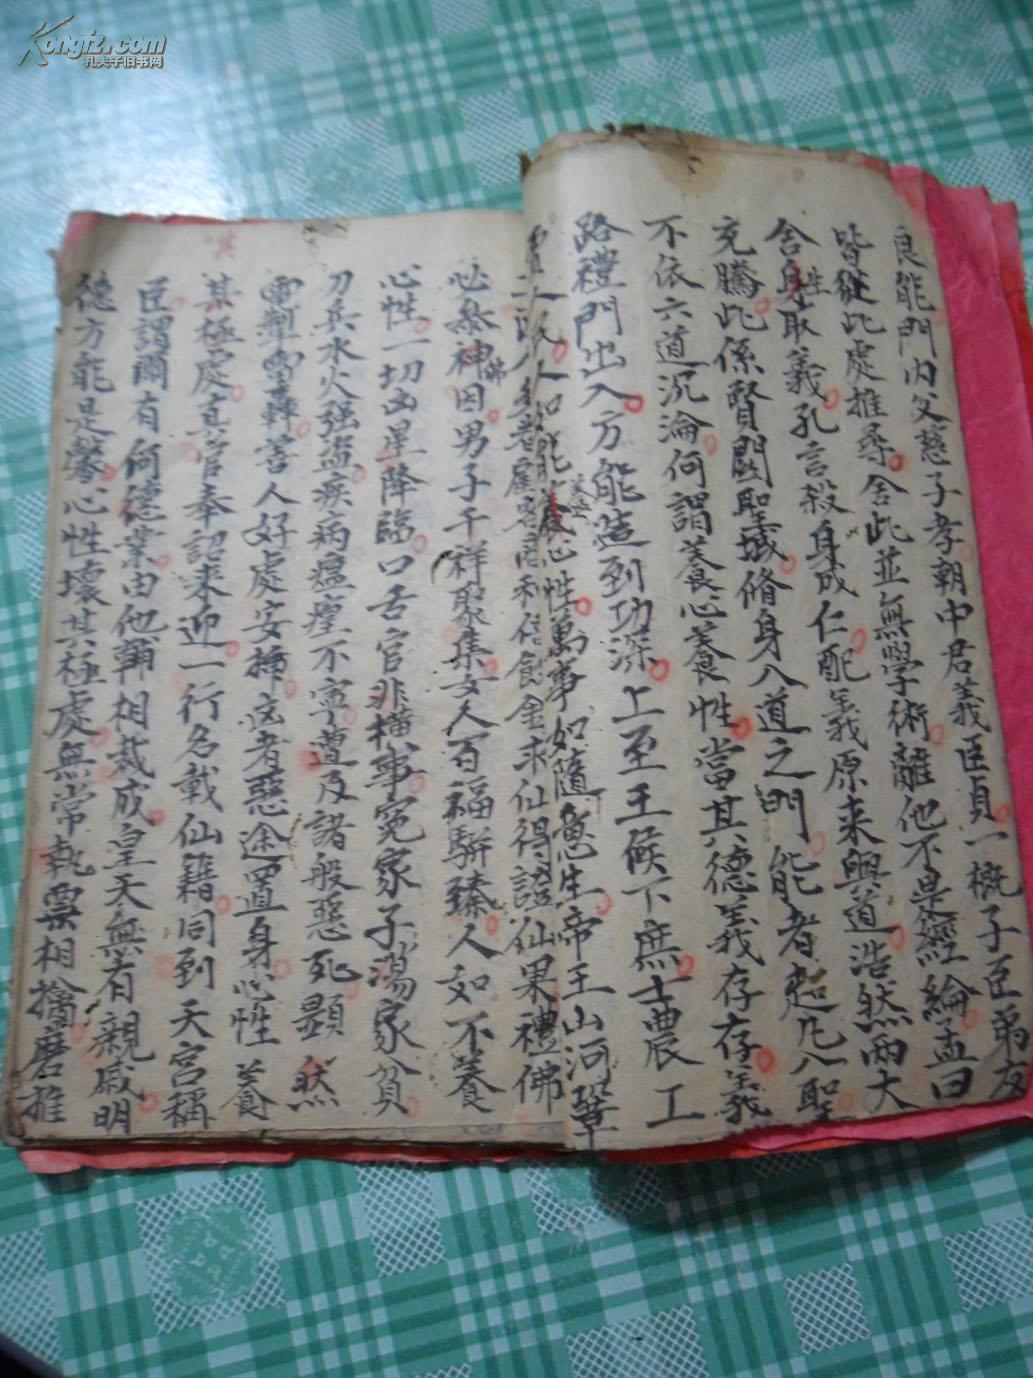 Kongfz.com
孔夫子旧书网
良能門內父慈子孝朝中君義臣貞一概子臣弟友
皆從此處推尋舍此並無學術離他不是經綸孟曰
舍身取義孔言殺身成仁配義原來與道浩然兩大
性
充騰此係賢關聖域脩身八道之門能者超凡入聖
不依六道沉淪何謂養心養性當其德義存存義
路禮門出入方能造到功深上至王候下庶士農工
心性萬事如隨意生帝王山河鞏
商利倍餘金求仙得證仙果禮佛
必參神因男子千祥聚集女人百福駢臻人如不養
佛
心性一切凶星降臨口舌官非橫事冤家子蕩家貧
刀兵水火强盜疾病瘟瘴不寧遭及諸般惡死顯然
電掣雷轟善人好處安排惡途置身心性養
其極處真官奉詔來迎一行名載仙籍同到天宮稱
臣謂爾有何德業由他輔相裁成皇天無有親戚明
德方能是馨心性壞其極處無常執票相擒磨推